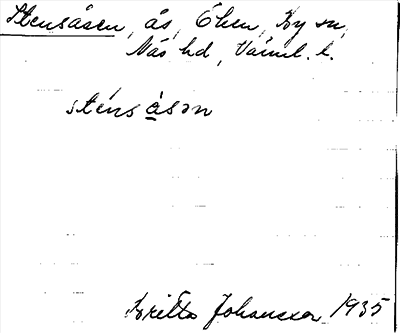 Stensåsen, ås, Öhen, By sn,
Näs hd, Värml. l.
sténsåsən
Britta Johansson 1935